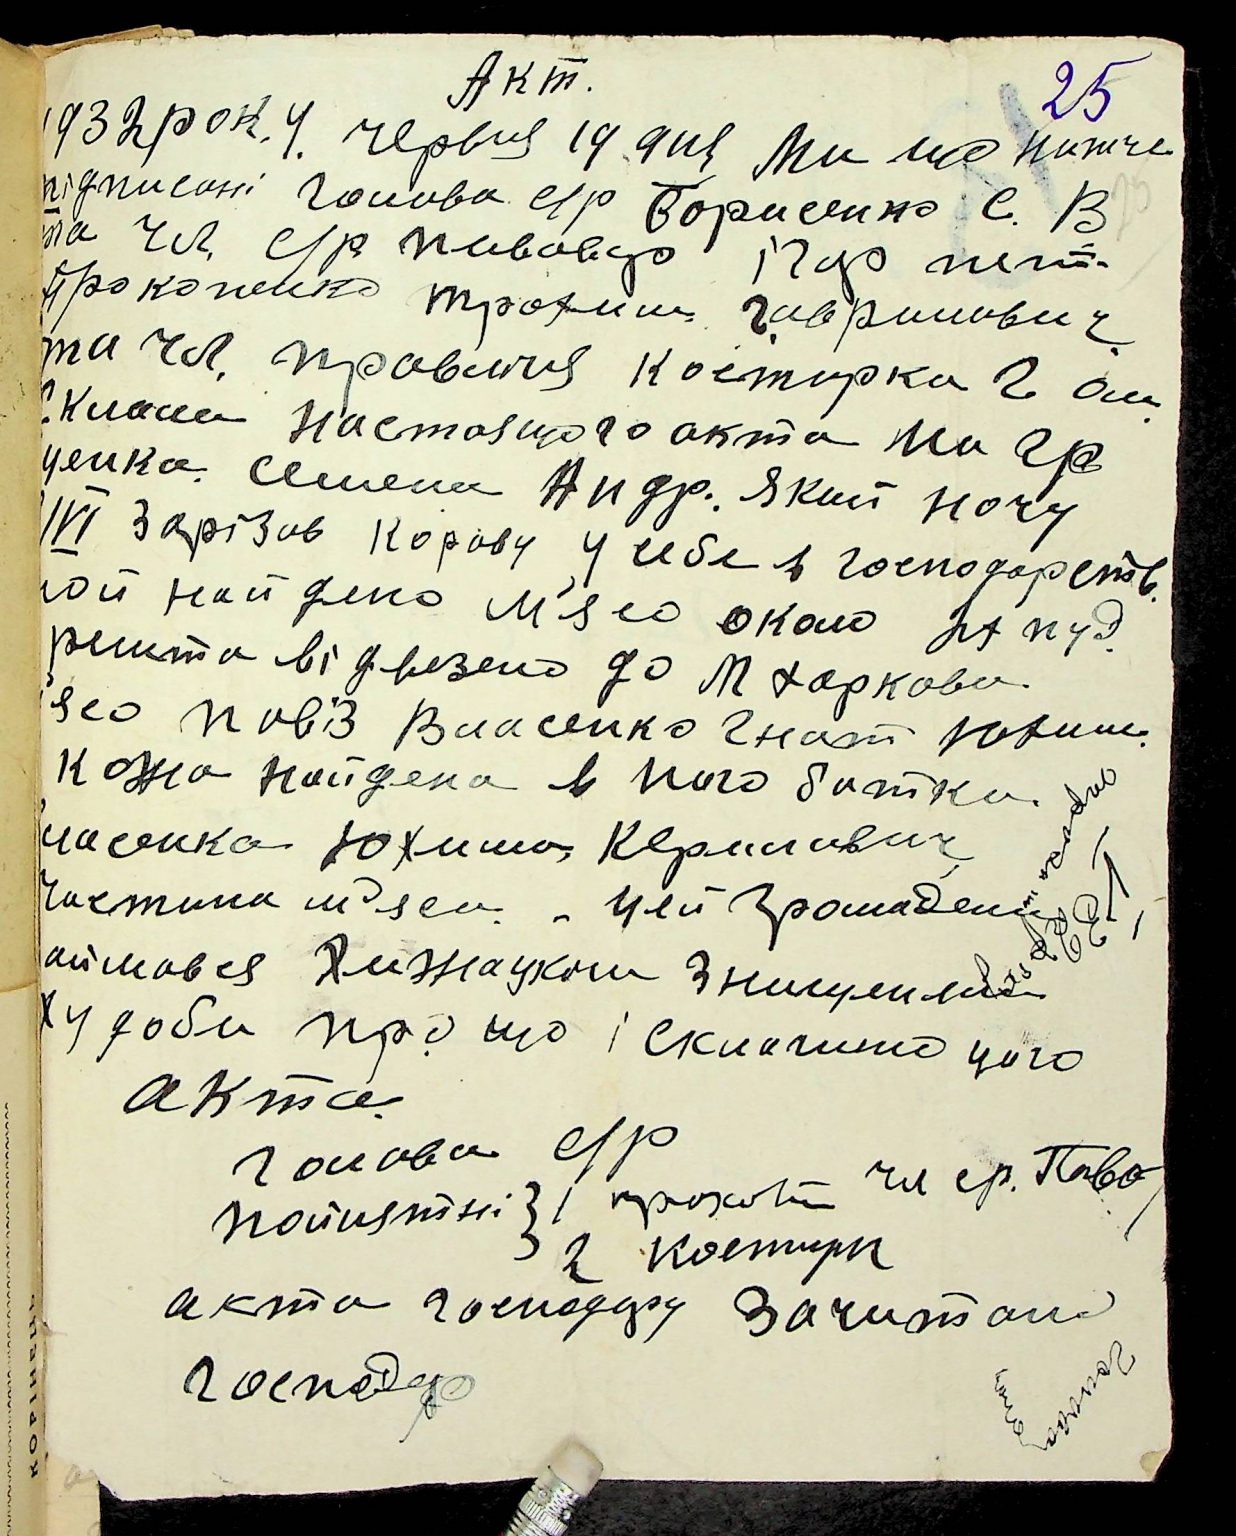 Акт.
25
1932 рок. У. червня 19 дня Ми що нижче
підписані голова с/р Борисенко С. В
та чл. с/р пивовар ігор пет.
Прокопенко трохим гаврилович
та чл. правління Костирка г ом.
склали настоящого акта на гр
ценка. семена Андр. Який ночу
VI зарізав корову у себе в господарств.
найдено м'ясо около пуд.
решта відвезено до М харкова
ясо повіз Власенко гнат Юхим.
Кожа найдена в його батька
ласенка Юхима Кирилович
частина м'яса. - Цей громаденин
аймався хижацким знищенням
худоби про що і складино цого
акта.
голова с/р
понятні } 1 прокоп чл ср. Пиво
2 Костирк
акта господару зачитано
господар
голова